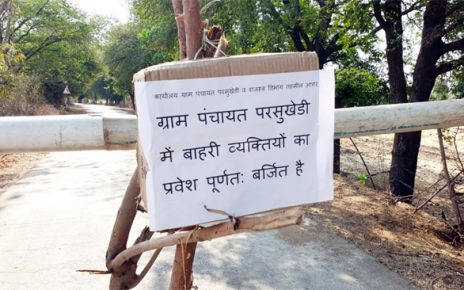 कार्यालय ग्राम पंचायत परसुखेडी व राजस्व विभाग तहसील आगर
ग्राम पंचायत परसुखेडी
में बाहरी व्यक्तियों का
प्रवेश पूर्णत: बर्जित है